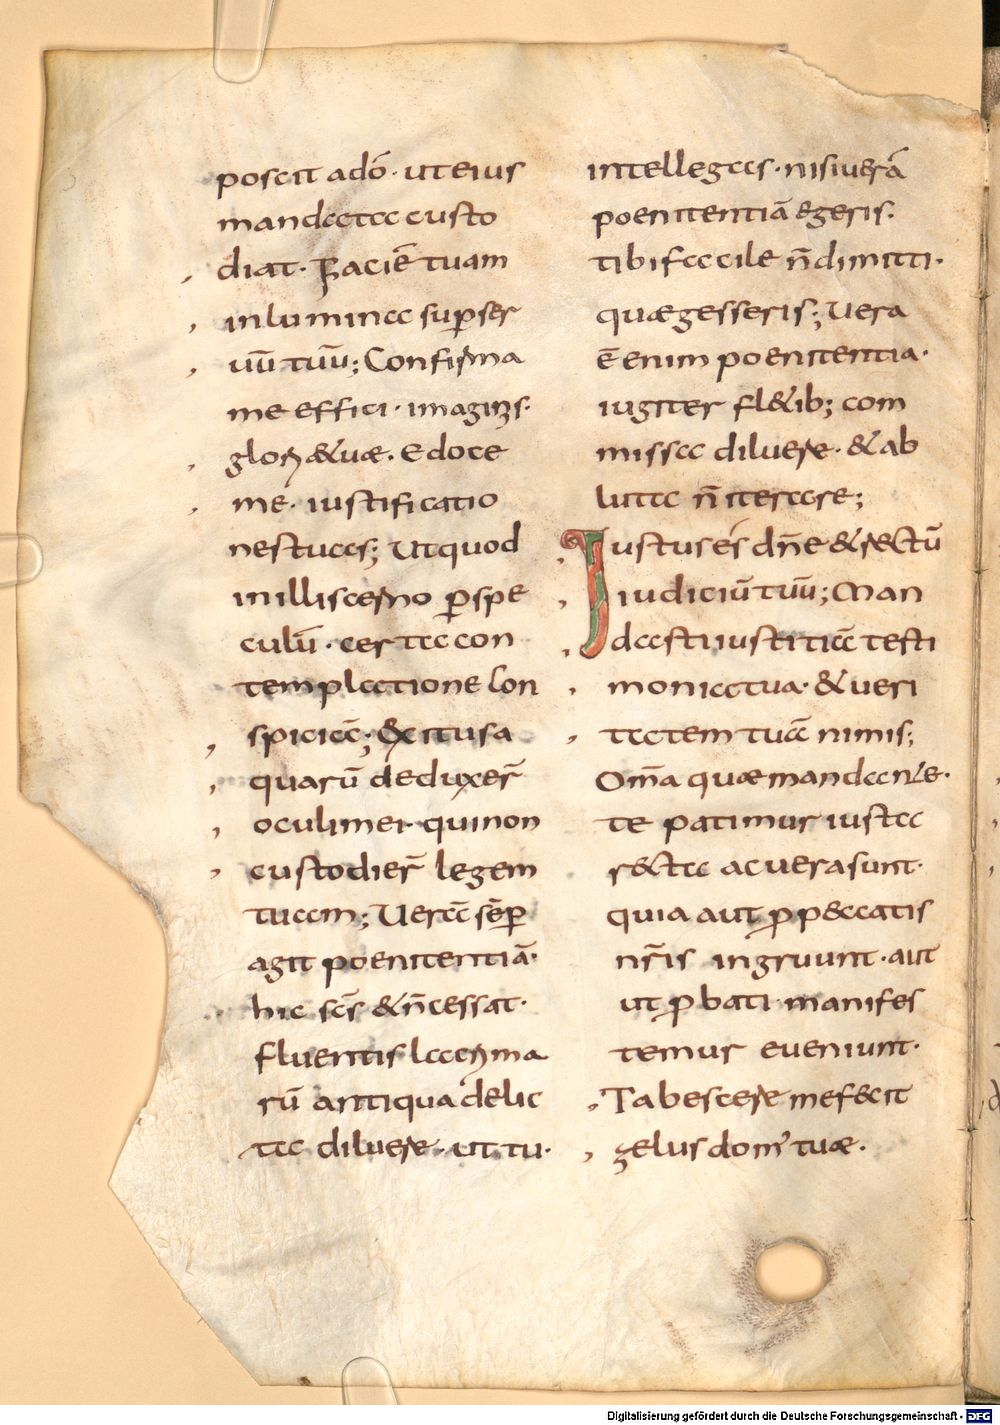 poscit adō· ut eius
mandata custo
diat· Faciē tuam
inlumina sup ser
uū tuū; Confirma
me effici· imaginis·
gloriæ tuæ. Edoce
me· iustificatio
nes tuas; Ut quod
in illis cerno p̄ spe
culū· certa con
templatione con
spiciā; Exitus a
quarū deduxer̄
oculi mei· qui non
custodier̄ legem
tuam; Uerā sēp
agit poenitentiā·
hic sc̄s & n̄ cessat·
fluentis lacrima
rū antiqua delic
ta diluere· ut tu·
intellegas· nisi uerā
poenitentiā egeris·
tibi facile n̄ dimitti·
quæ gesseris; Uera
ē enim poenitentia·
iugiter fl&ib; com
missa diluere· & ab
luta n̄ iterare;
Iustus es dn̄e & rectū
iudiciū tuū; Man
dasti iustitiā testi
monia tua· & ueri
tatem tuā nimis;
Om̄a quæ mandante·
te patimur iusta
r&ta ac uera sunt·
quia aut p peccatis
nr̄is ingruunt· aut
ut p bati· manifes
temur eueniunt·
Tabescere me fecit
zelus dom' tuæ·
Digitalisierung gefördert durch die Deutsche Forschungsgemeinschaft - DFG